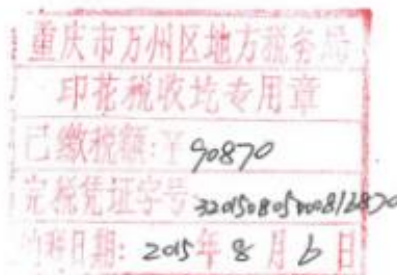 重庆市万州区地方税务局
印花税收讫专用章
已缴税额:¥90870
完税凭证字号320150805000812870
纳税日期:2015年8月6日